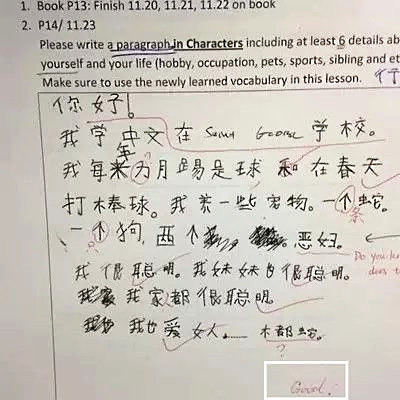 1. Book P13: Finish 11.20, 11.21, 11.22 on book
2. P14/ 11.23
Please write a paragraph in Characters including at least 6 details ab
yourself and your life (hobby, occupation, pets, sports, sibling and et
Make sure to use the newly learned vocabulary in this lesson.
你好!
我学中文在 Saint George 学校。
我每年 月踢足球和在春天
打棒球。我养一些宠物。一个蛇。
条
一个狗,两个 。恶妇。
Do you kn
我很聪明。我妹妹也很聪明。
does t
我家都很聪明。
我也爱女人…… 木都蛇。
?
Good!